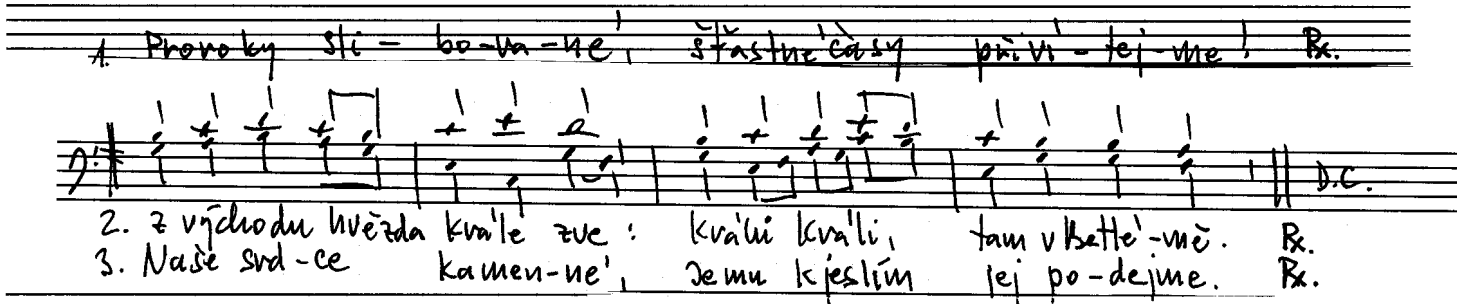 1. Proroky sli-bo-va-né, šťastné časy přiví-tej-me! Rx.
D.C.
2. Z východu hvězda krále zve: králi králi, tam v Betlé-mě. Rx.
3. Naše srd-ce kamen-né, Jemu k jeslím jej po-dejme. Rx.